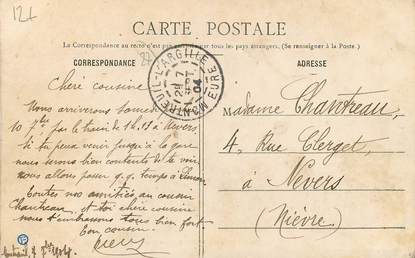 12f
CARTE POSTALE
La Correspondance au recto n'est pas acceptée par tous les pays étrangers. (Se renseigner à la Poste.)
CORRESPONDANCE
ADRESSE
MONTREUIL-L'ARGILLÉ
7
04
EURE
Chère cousine
Nous arriverons samedi
10 7bre par le train de 1h,13 à Nevers
Si tu peux venir jusqu'à la gare
nous serons bien contents de te voir
nous allons passer q.q. temps à
Toutes nos amitiés au cousin
Chantreau et toi chère cousine
nous t'embrassons tous bien fort
Ton cousin.
Madame Chantreau,
4, Rue Clerget,
à Nevers
(Nièvre)
Montreuil, 7 7bre 1904